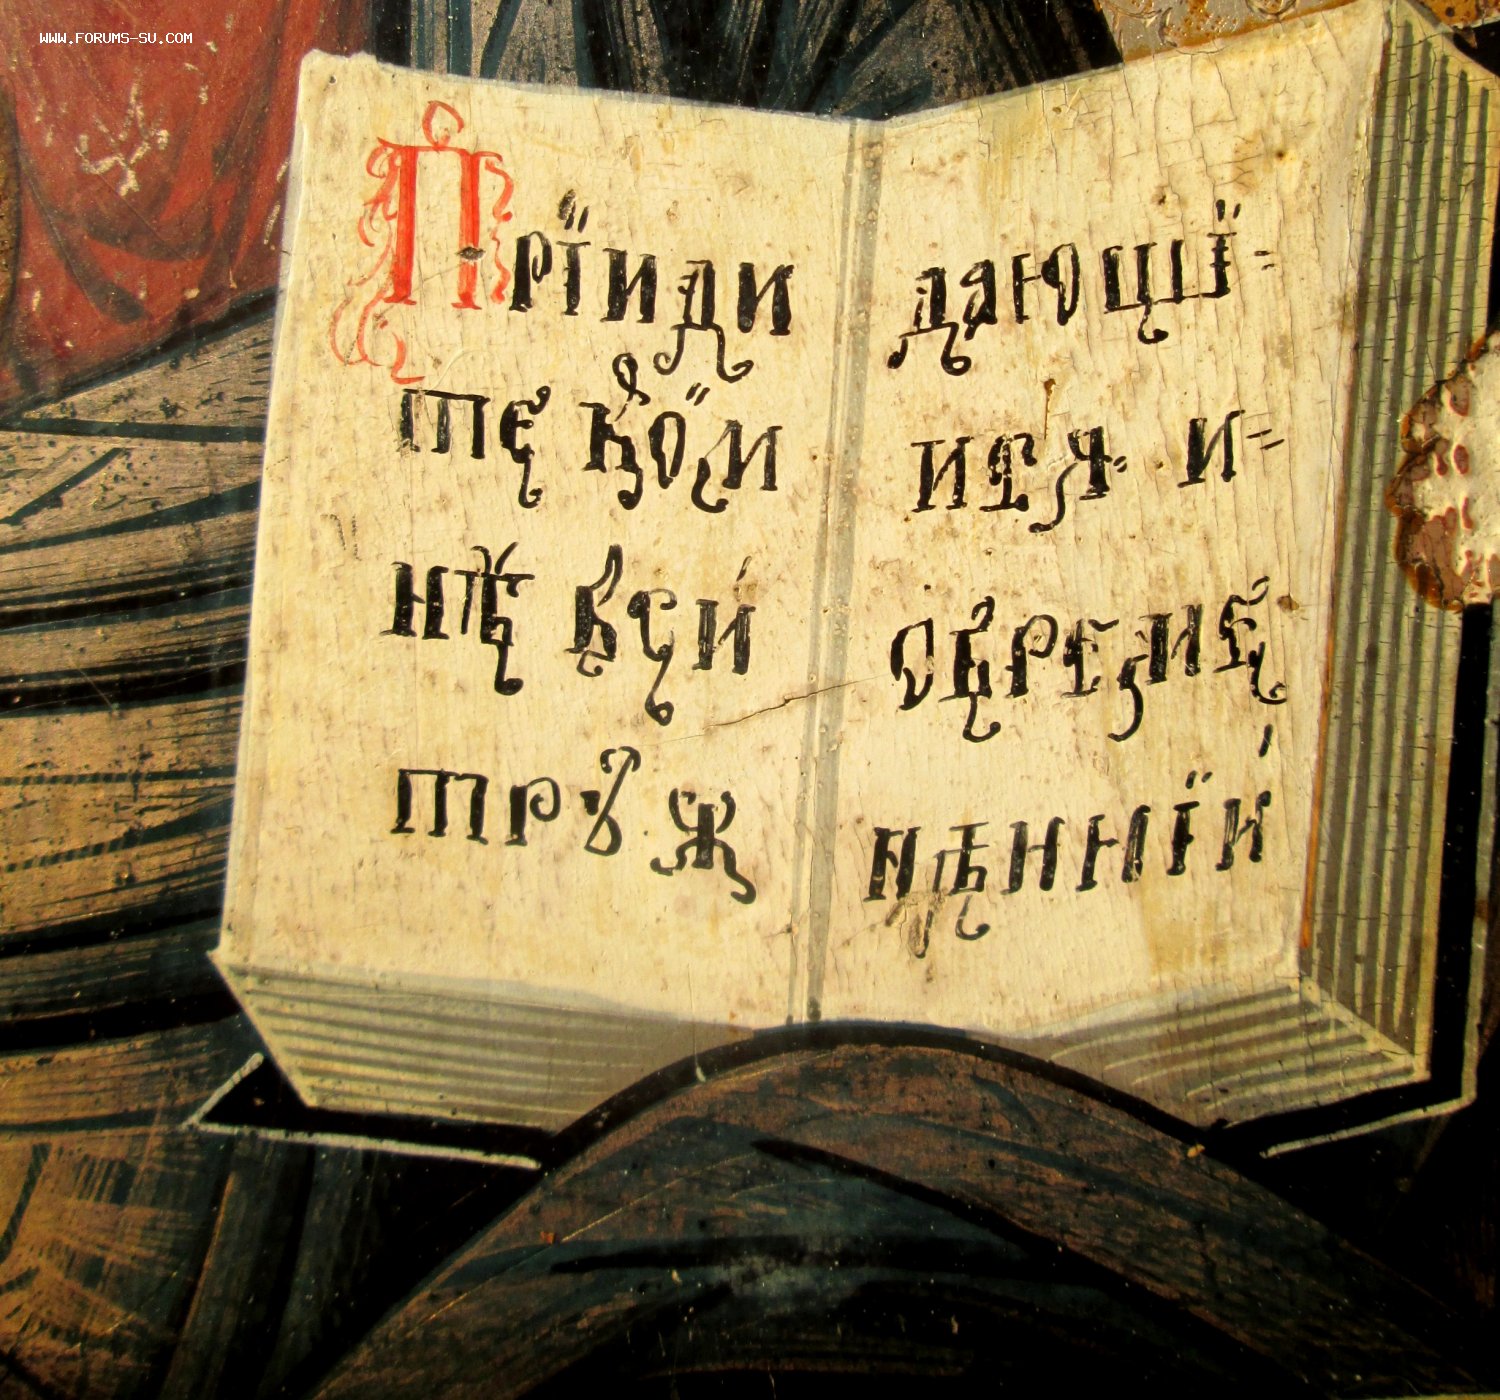 WWW.FORUMS-SU.COM
Прїиди
те ко м
нѣ вси
трꙋж
дающї=
ися и=
обреме
нѣннїи